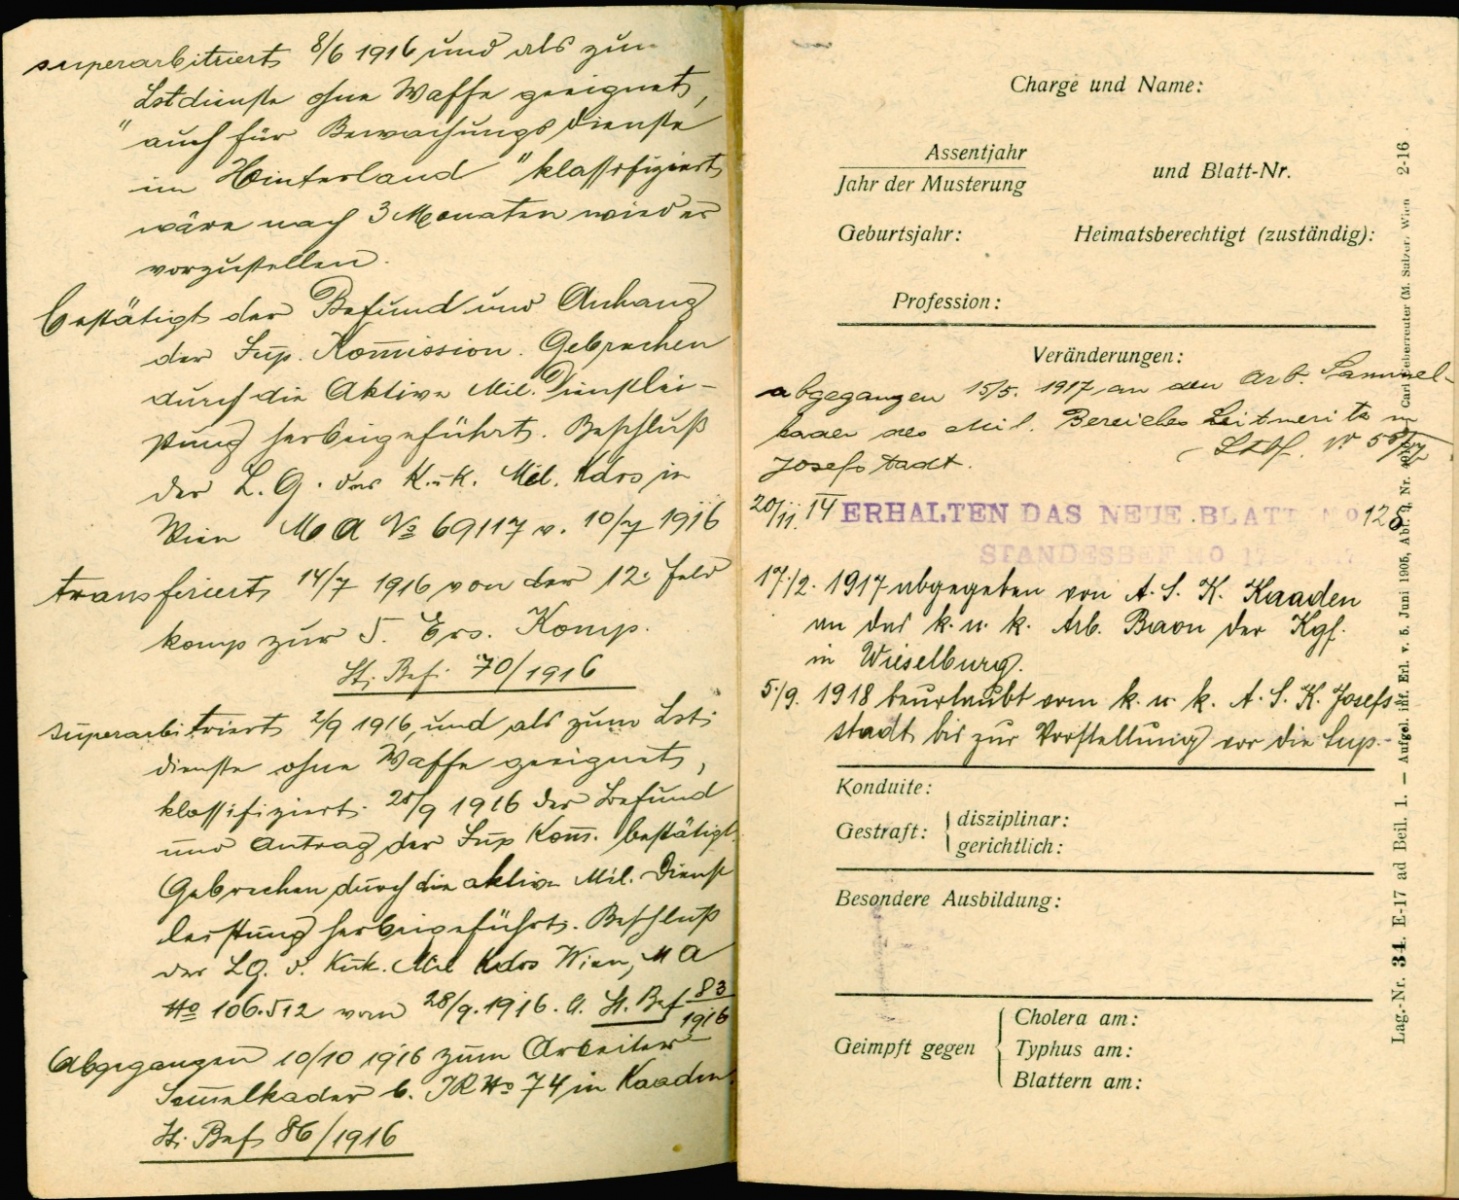 superarbitriert 8/6 1916 und als zum
Lstdienste ohne Waffe geeignet,
"auch für Bewachungsdienste
im Hinterland" klassifiziert
wäre nach 3 Monaten wieder
vorzustellen.
bestätigt der Befund und Anhang
der Sup. Kom̄ission. Gebrechen
durch die Aktive Mil. Dienstlei-
stung herbeigeführt. Beschluß
der L. G. des K.u.K. Mil. Kdos in
Wien M A No 69117 v. 10/7 1916
transferiert 14/7 1916 von der 12. Feld
komp zur 5. Ers. Komp.
St. Bef. 70/1916
superarbitriert 2/9 1916, und als zum Lst.
dienste ohne Waffe geeignet,
klassifiziert. 28/9 1916 der Befund
und Antrag der Sup Kom̄. bestätigt.
Gebrechen durch die aktive Mil. Dienst
leistung herbeigeführt. Beschluß
der LG. d. K.u.K. Mil Kdos Wien, M A
No 106.512 vom 28/9. 1916. St. Bef 83/1916
Abgegangen 10/10 1916 zum Arbeiter-
Sam̄elkader b. IR No 74 in Kaaden.
St. Bef 86/1916
Charge und Name:
Assentjahr
Jahr der Musterung
und Blatt-Nr.
Geburtsjahr:
Heimatsberechtigt (zuständig):
Profession:
Veränderungen:
abgegangen 15/5. 1917 an den Arb. Sammel-
kader des Mil. Bereiches Leitmeritz in
Josefstadt.
20/11. 17 ERHALTEN DAS NEUE BLATT No 125
17./2. 1917 abgegeben von A. S. K. Kaaden
an das k. u. k. Arb. Baon der Kgf.
in Wieselburg.
5./9. 1918 beurlaubt vom k. u. k. A. S. K. Josef-
stadt bis zur Vorstellung vor die Sup.-
Konduite:
Gestraft: disziplinar:
gerichtlich:
Besondere Ausbildung:
Geimpft gegen
Cholera am:
Typhus am:
Blattern am:
Lag.-Nr. 34. E-17 ad Beil. 1. — Aufgel. mit Erl. v. 5. Juni 1905, Abt. 2, Nr. Carl Ueberreuter (M. Salzer), Wien 2-16